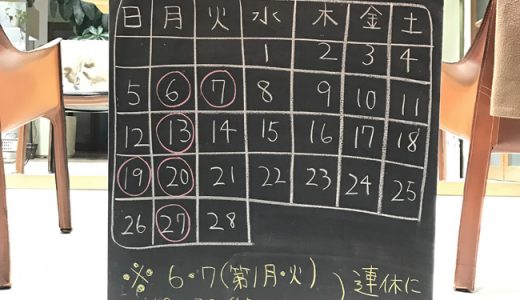 日 月 火 水 木 金 土
1 2 3 4
5 6 7 8 9 10 11
12 13 14 15 16 17 18
19 20 21 22 23 24 25
26 27 28
※ 6・7(第1月・火)
連休に